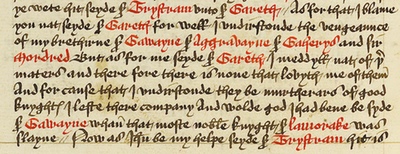 ye wete hit seyde ß Trystram vnto ß Gareth / As for that I blame
you nat seyde ß Gareth for well I vndirstonde the vengeaunce
of my brethirne ß Gawayne ß Aggravayne ß Gaherys and sir
Mordred. But as for me seyde ß Gareth I meddyll nat of þr
maters and there fore there is none that lovyth me of them
And for cause that I vndirstonde they be murtherars of good
knyghtꝭ I lefte there company And wolde god I had bene be syde
ß Gawayne whan that moste noble knyght ß lamorake was
slayne // Now as Jhu be my helpe seyde ß Trystram hit is